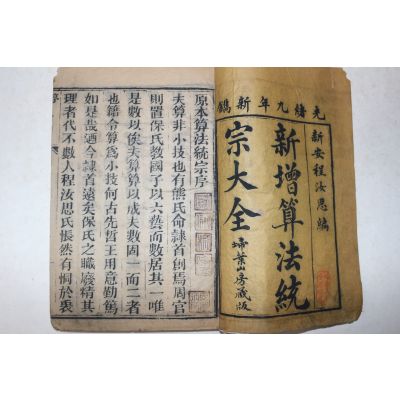 光緒九年新鐫
新安程汝思編
新增算法統
宗大全
掃葉山房藏版
原本算法統宗序
夫算非小技也有熊氏命隸首創焉周官
則置保氏教國子以六藝而數居其一唯
是數以俟夫算算以成夫數固一而二者
也籍令算為小技何古先哲王用意勤篤
如是哉迺今隸首遠矣保氏之職廢精其
理者代不數人程汝思氏悵然有恫於衷